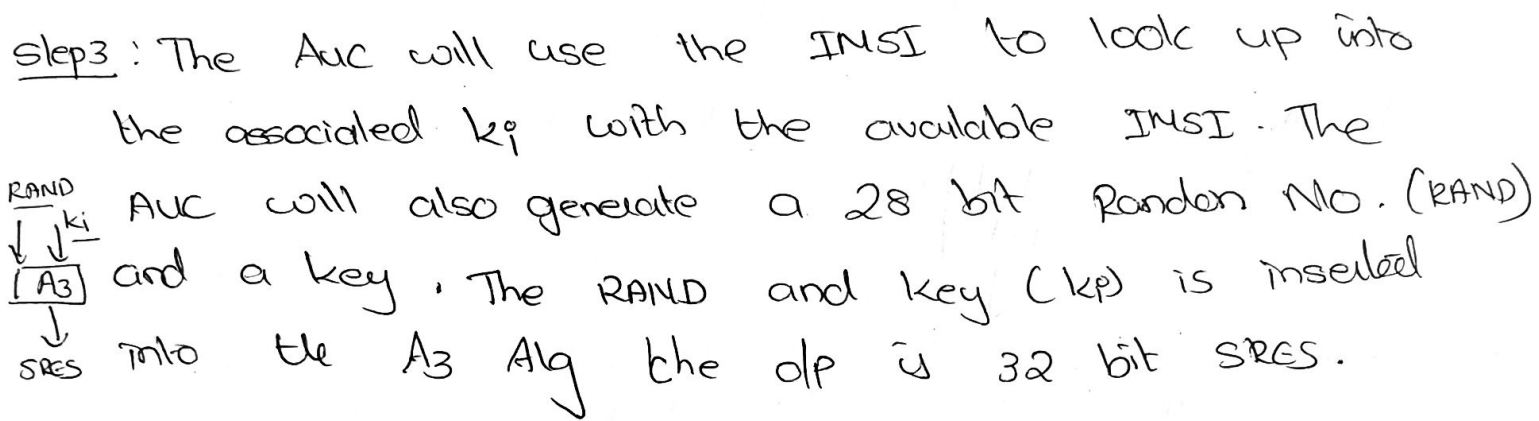 Step3 : The AuC will use the IMSI to look up into
the associated ki with the available IMSI. The
RAND
AUC will also generate a 28 bit Random No. (RAND)
ki
A3
and a key. The RAND and key (ki) is inserted
SRES
into the A3 Alg the o/p is 32 bit SRES.